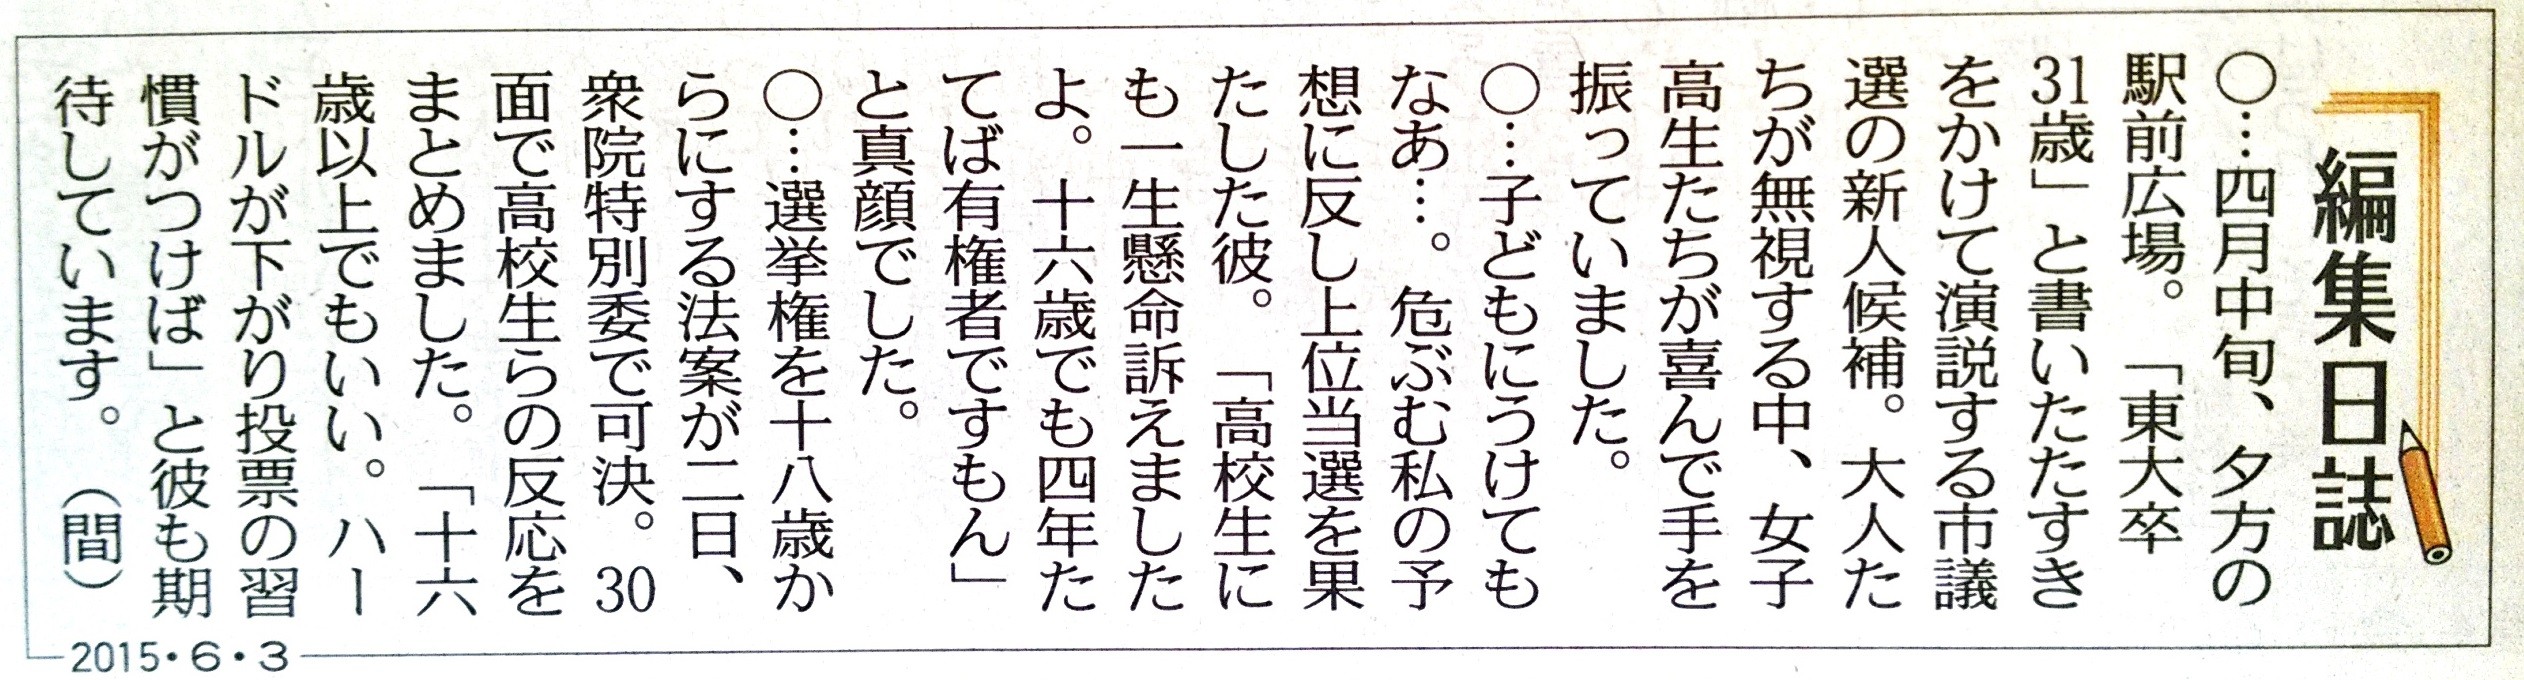 編集日誌
○…四月中旬、夕方の
駅前広場。「東大卒
31歳」と書いたたすき
をかけて演説する市議
選の新人候補。大人た
ちが無視する中、女子
高生たちが喜んで手を
振っていました。
○…子どもにうけても
なあ…。危ぶむ私の予
想に反し上位当選を果
たした彼。「高校生に
も一生懸命訴えました
よ。十六歳でも四年た
てば有権者ですもん」
と真顔でした。
○…選挙権を十八歳か
らにする法案が二日、
衆院特別委で可決。30
面で高校生らの反応を
まとめました。「十六
歳以上でもいい。ハー
ドルが下がり投票の習
慣がつけば」と彼も期
待しています。（間）
2015・6・3